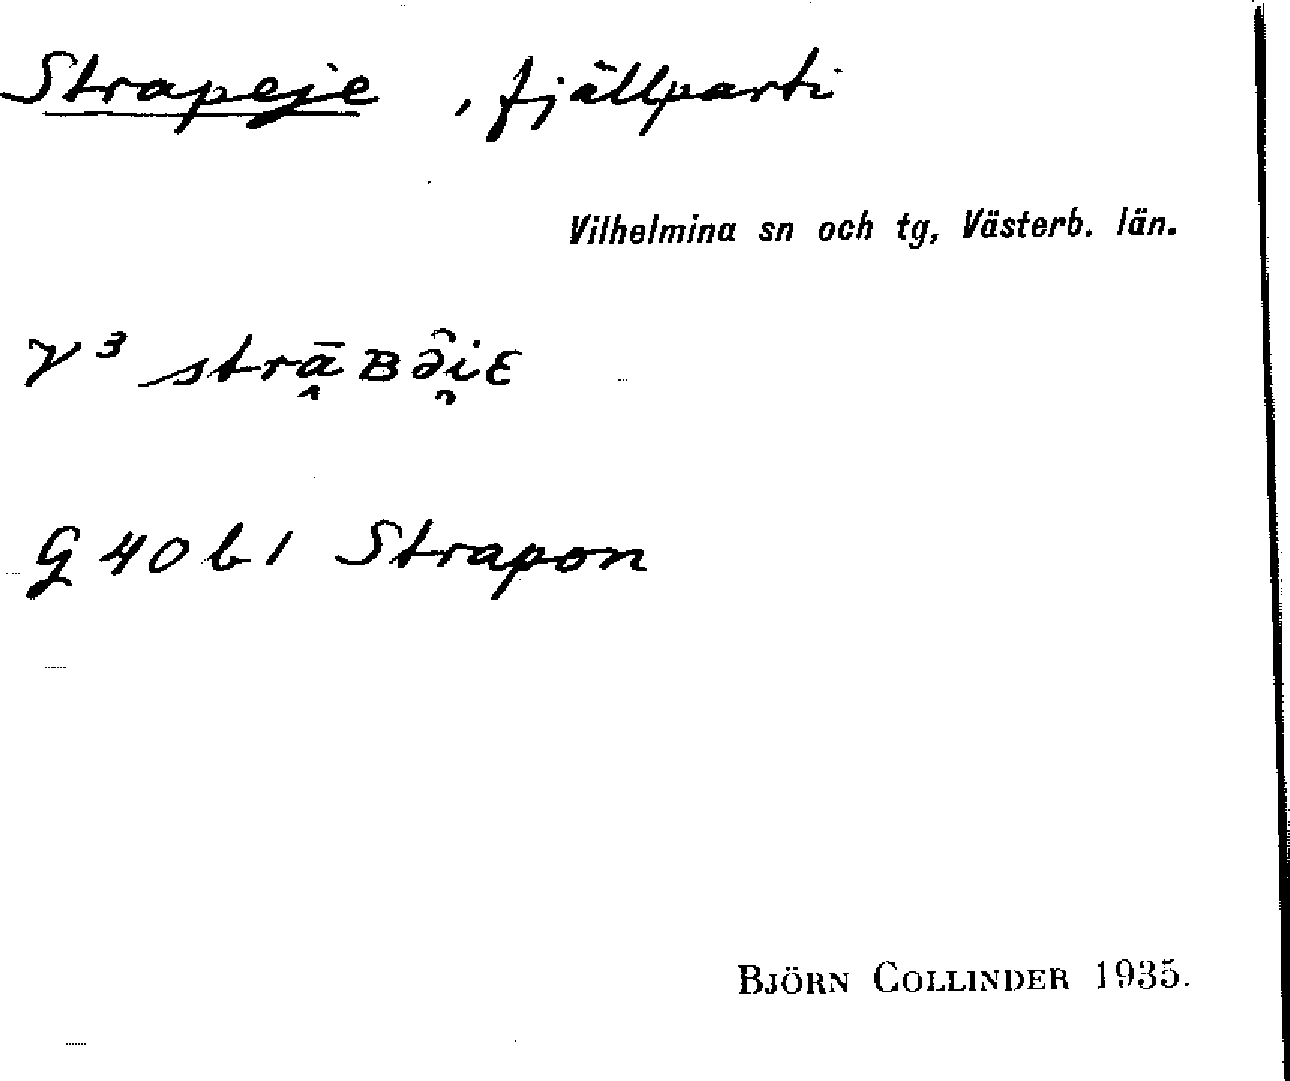 Strapeje , fjällparti
Vilhelmina sn och tg, Västerb. län.
V³ strā̭ʙə̑i̮ɛ
G 40 b 1 Strapon
BJÖRN COLLINDER 1935.